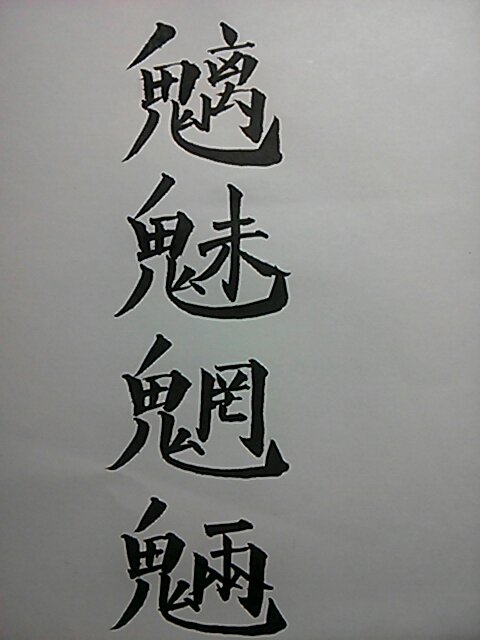 魑魅魍魎